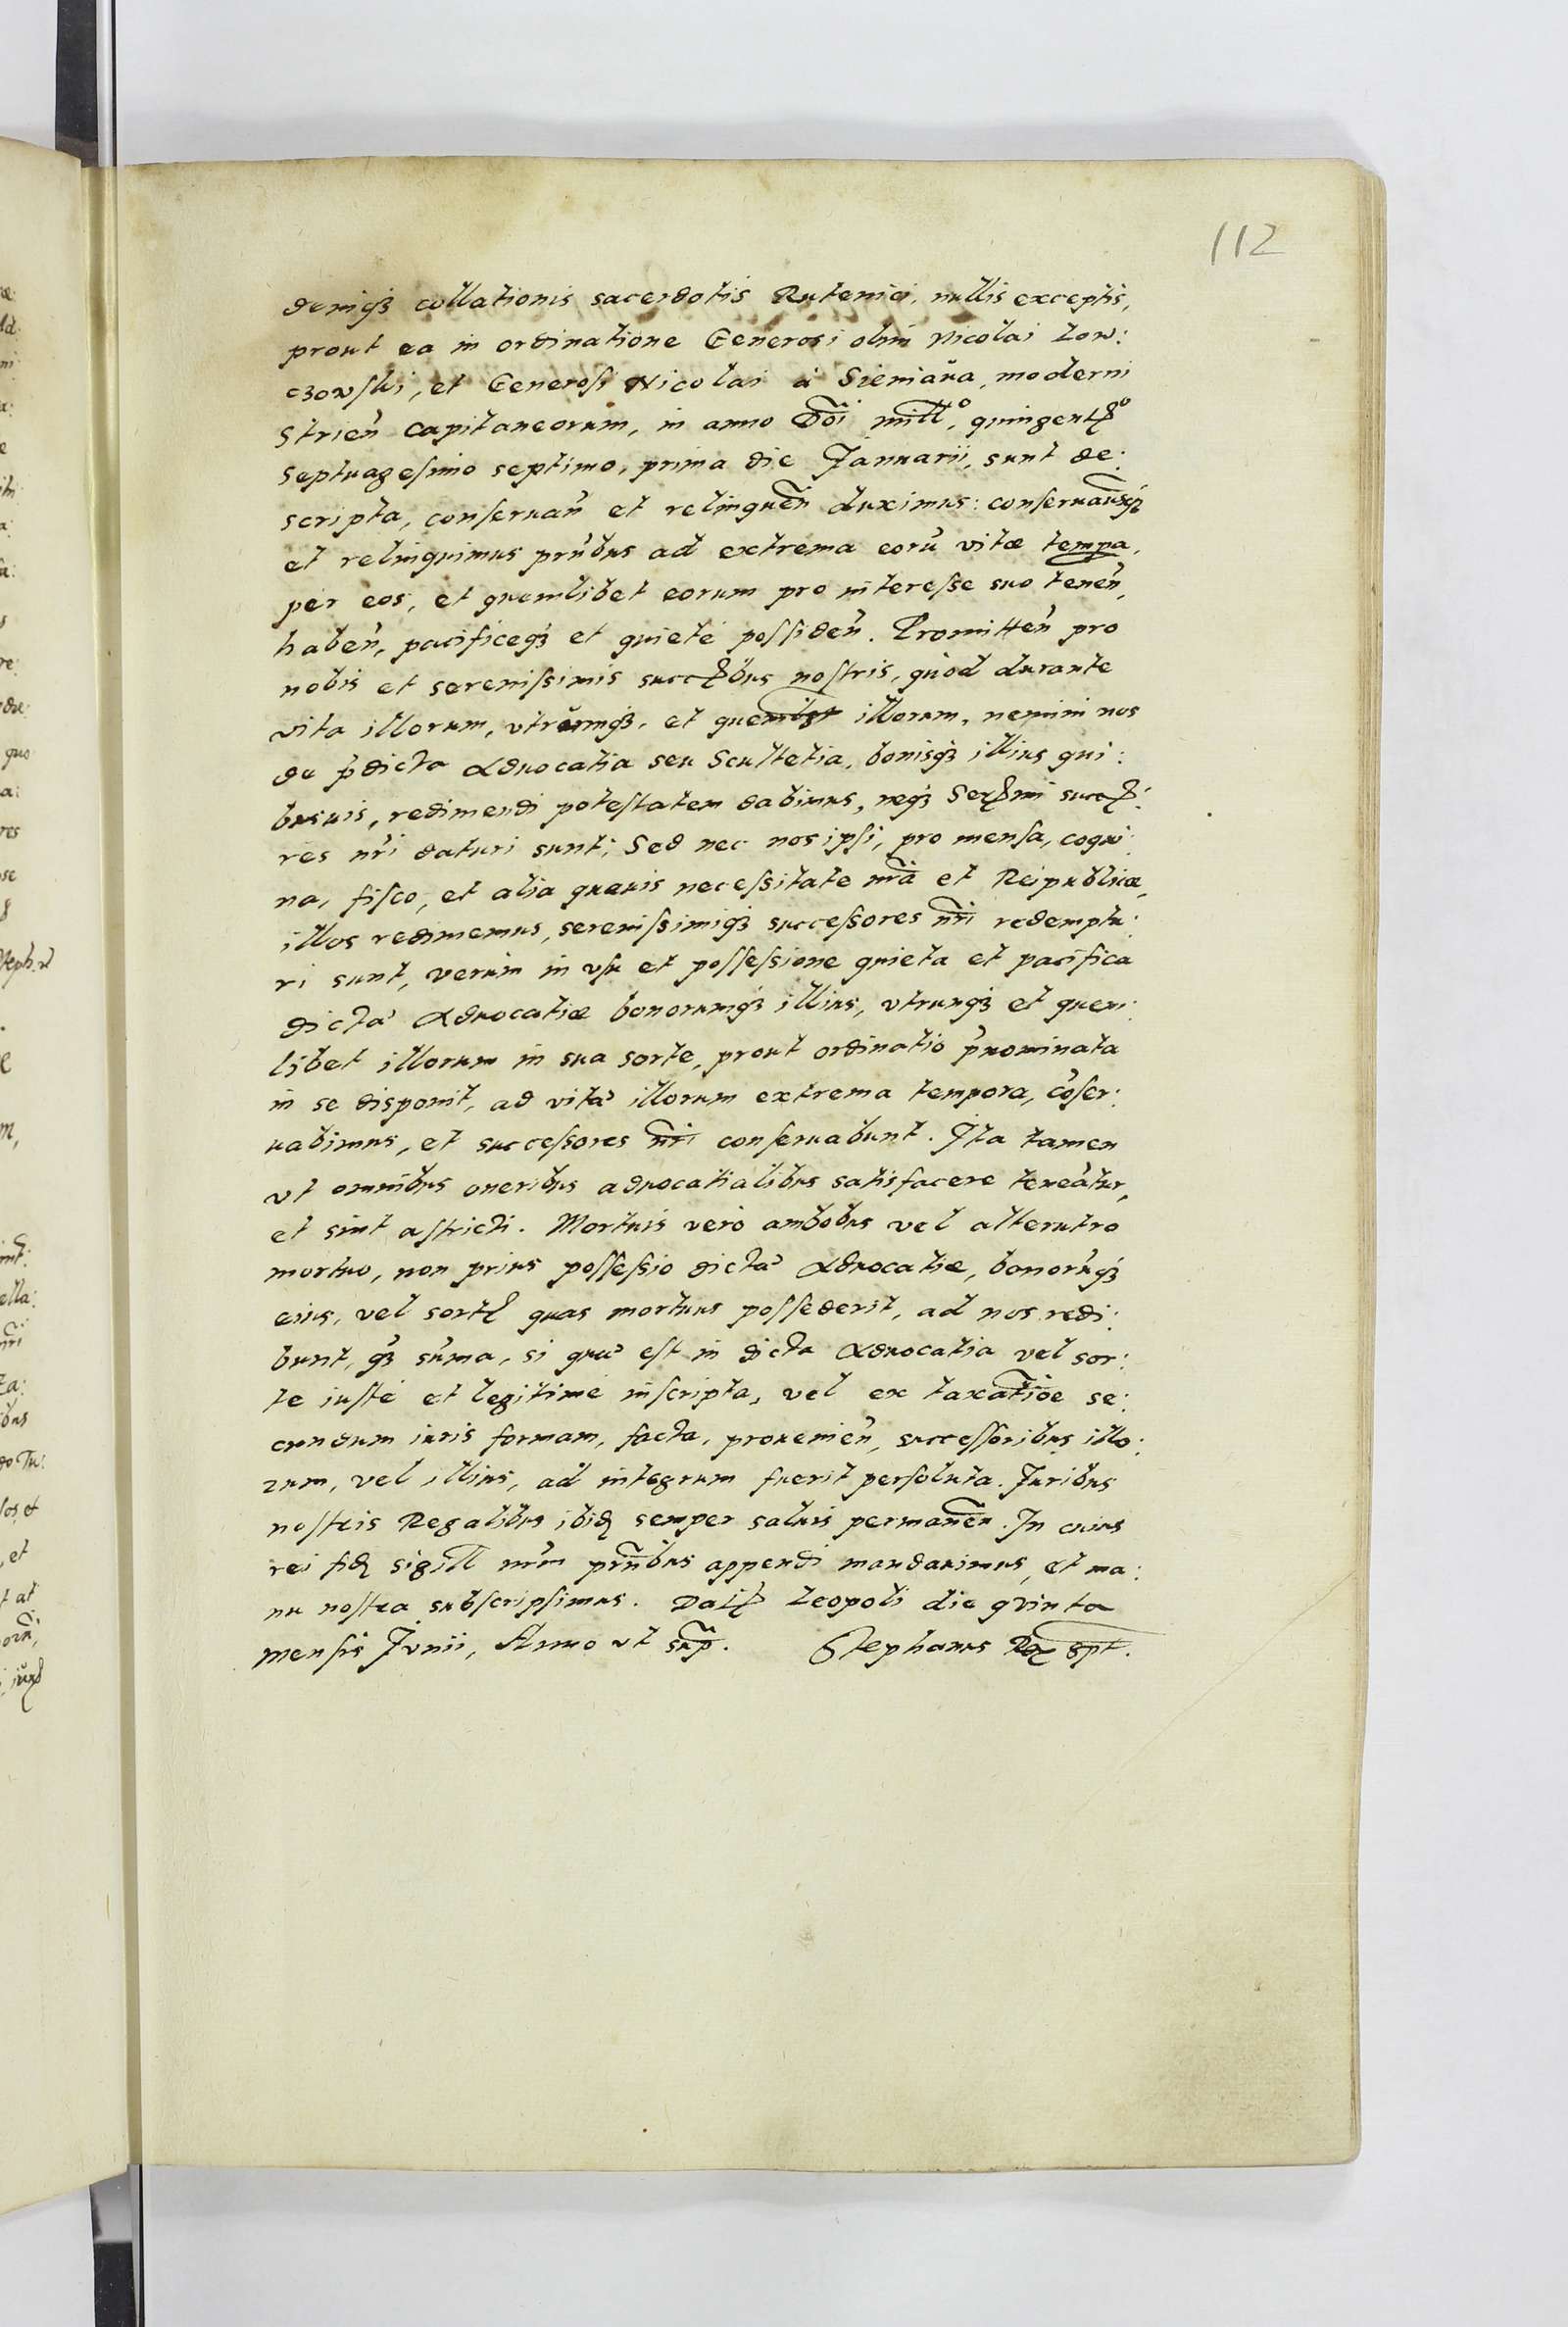 112
deniqꝫ collationis sacerdotis Rutenici, nullis exceptis,
prout ea in ordinatione Generosi olim Nicolai Low:
czowſki, et Generoſi Nicolai à Sieniaŭa, moderni
Strieñ Capitaneorum, in anno Dñi mill°, quingent°
septuageſimo septimo, prima die Januarii, sunt de:
scripta, conſeruañ et relinqueñ duximus: conſeruamusqꝫ
et relinquimus pr̃ñbus ad extrema eorũ vitæ tempa,
per eos, et quemlibet eorum pro intereſse suo teneñ,
habeñ, pacificeqꝫ et quietè poſſideñ. Promitteñ pro
nobis et sereniſsimis succꝭbus noſtris, quòd durante
vita illorum, vtrũmqꝫ, et quemlibet illorum, nemini nos
de p̃dicta Aduocatia seu Scultetia, bonisqꝫ illius qui:
busuis, redimendi poteſtatem dabimus, neqꝫ Serꝭmi succꝭ:
res nr̃i daturi sunt; Sed nec nos ipſi, pro menſa, coqui:
na, fiſco, et alia quauis neceſsitate nr̃a et Reipublicæ,
illos redimemus, sereniſsimiqꝫ succeſsores nr̃i redemptu:
ri sunt, verùm in vſu et poſſeſsione quieta et pacifica
dictæ Aduocatiæ bonorumqꝫ illius, vtrunqꝫ et quem:
libet illorum in sua sorte, prout ordinatio p̃nominata
in se disponit, ad vitæ illorum extrema tempora, cõſer:
uabimus, et succeſsores nr̃i conſeruabunt. Ita tamen
vt omnibus oneribus aduocatialibus satisfacere teneãtur,
et sint aſtricti. Mortuis verò ambobus vel alterutro
mortuo, non prius poſſeſsio dictæ Aduocatiæ, bonorũqꝫ
eius, vel sortꝭ quas mortuus poſſederit, ad nos redi:
bunt, qꝫ sũma, si quæ eſt in dicta Aduocatia vel sor:
te iuſtè et legitimè inſcripta, vel ex taxatiõe se:
cundum iuris formam, facta, prouenieñ, succeſſoribus illo:
rum, vel illius, ad integrum fuerit perſoluta. Juribus
noſtris Regalibus ibidꝫ semper saluis permaneñ. In cuius
rei fidꝫ sigill nr̃m pr̃ñbus appendi mandauimus, et ma:
nu noſtra subſcripſimus. Datꝭ Leopoli die quinta
menſis Junii, Anno vt sup̃. Stephanus Rex sp̃t.